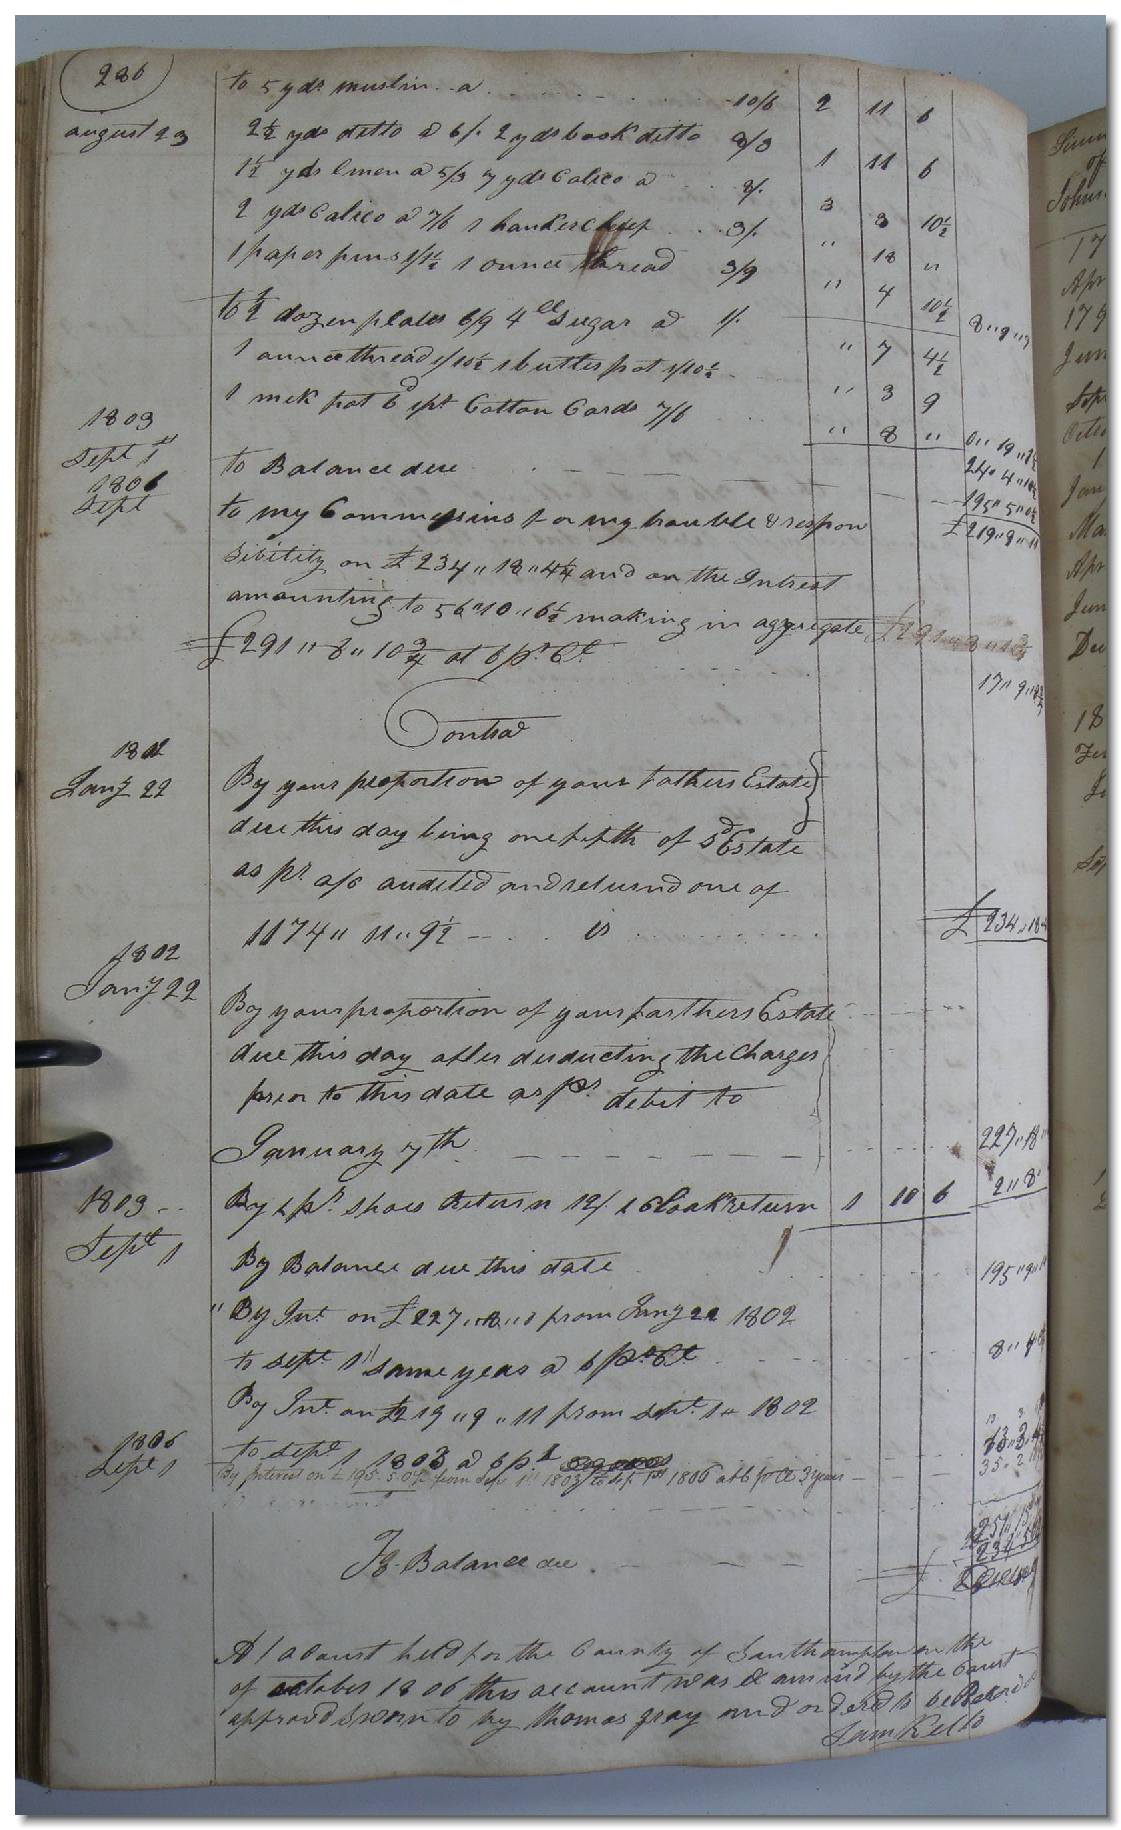 286
to 5 yds muslin a 10/6 2 11 6
august 23 2½ yds ditto a 6/. 2 yds book ditto 8/3 1 11 6
1½ yds linen a 5/3 7 yds Calico a 8/. 3 3 10½
2 yds Calico a 7/6 1 hankerchief 3/. " 18 "
1 paper pins 1/1½ 1 ounce thread 3/9 " 4 10½ 8"9"
to ½ dozen plates 6/9 4 Sugar a 1/. " 7 4½
1 ounce thread 1/10½ 1 butter pot 1/10½ " 3 9
1 mek pot 6d 1 pt Cotton Cards 7/6 " 8 " 0"19"
1803
Sept 1st to Balance due 24"4"
1806 195"5"0½
Sept to my Commissins for my trouble & respon £219"9"11
sibility on £234"18"4¼ and on the Intrest
amounting to 56"10"6½ making in aggregate
£291"8"10¾ at 6 pr Ct 17"9"
Contra
Jany 22 By your proportion of your fathers Estate
due this day being one fifth of sd Estate
as pr a/c audited and returnd one of
1174"11"9½ is £234"18"4
1802
Jany 22 By your proportion of your farthers Estate
due this day after deducting the Charges
prior to this date as pr debit to
January 7th 227"18"
1803 By 1 pr shoes Return 12/. 1 Cloak return 1 10 6 2"8"
Sept 1 By Balance due this date 195"9"
" By Int on £227 from Jany 22 1802
to Sept 1" same year a 6 pr Ct 8"4
By Int on £219"9"11 from Sept 1" 1802
1806 to Sept 1 1803 a 6 p 13"3
Sept 1 By Interest on £195.5.0½ from Sept 1st 1803 to Sep 1st 1806 at 6 pr Ct 3 years 35.2
251"15
234
To Balance due £
At a Court held for the County of Southampton on the
of october 1806 this account was Examind by the Court
approvd Sworn to by thomas gray and orderd to be Recorded
Sam Kello